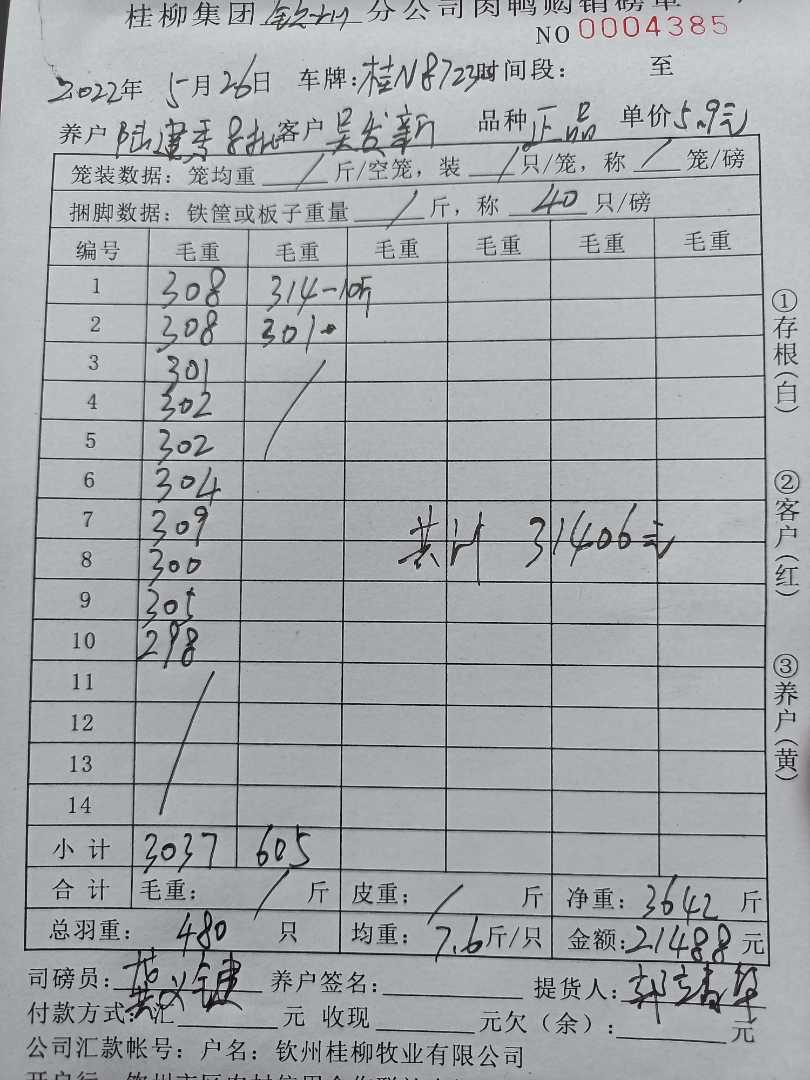 桂柳集团钦州分公司肉鸭购销磅单
NO 0004385
2022年 5月26日 车牌:桂N8723 时间段: 至
养户 陆建秀8批 客户 吴发新 品种 正品 单价 5.9元
笼装数据:笼均重 / 斤/空笼,装 / 只/笼,称 / 笼/磅
捆脚数据:铁筐或板子重量 / 斤,称 40 只/磅
编号 毛重 毛重 毛重 毛重 毛重 毛重
1 308 314-10斤
2 308 301
3 301 /
4 302
5 302
6 304
7 309 共计 31406元
8 300
9 305
10 298
11 /
12
13
14
小计 3037 605
合计 毛重: / 斤 皮重: / 斤 净重:3642 斤
总羽重: 480 只 均重: 7.6斤/只 金额:21488元
司磅员: 养户签名: 提货人:
付款方式:汇 元 收现 元欠(余): 元
公司汇款帐号:户名:钦州桂柳牧业有限公司
①存根(白)
②客户(红)
③养户(黄)